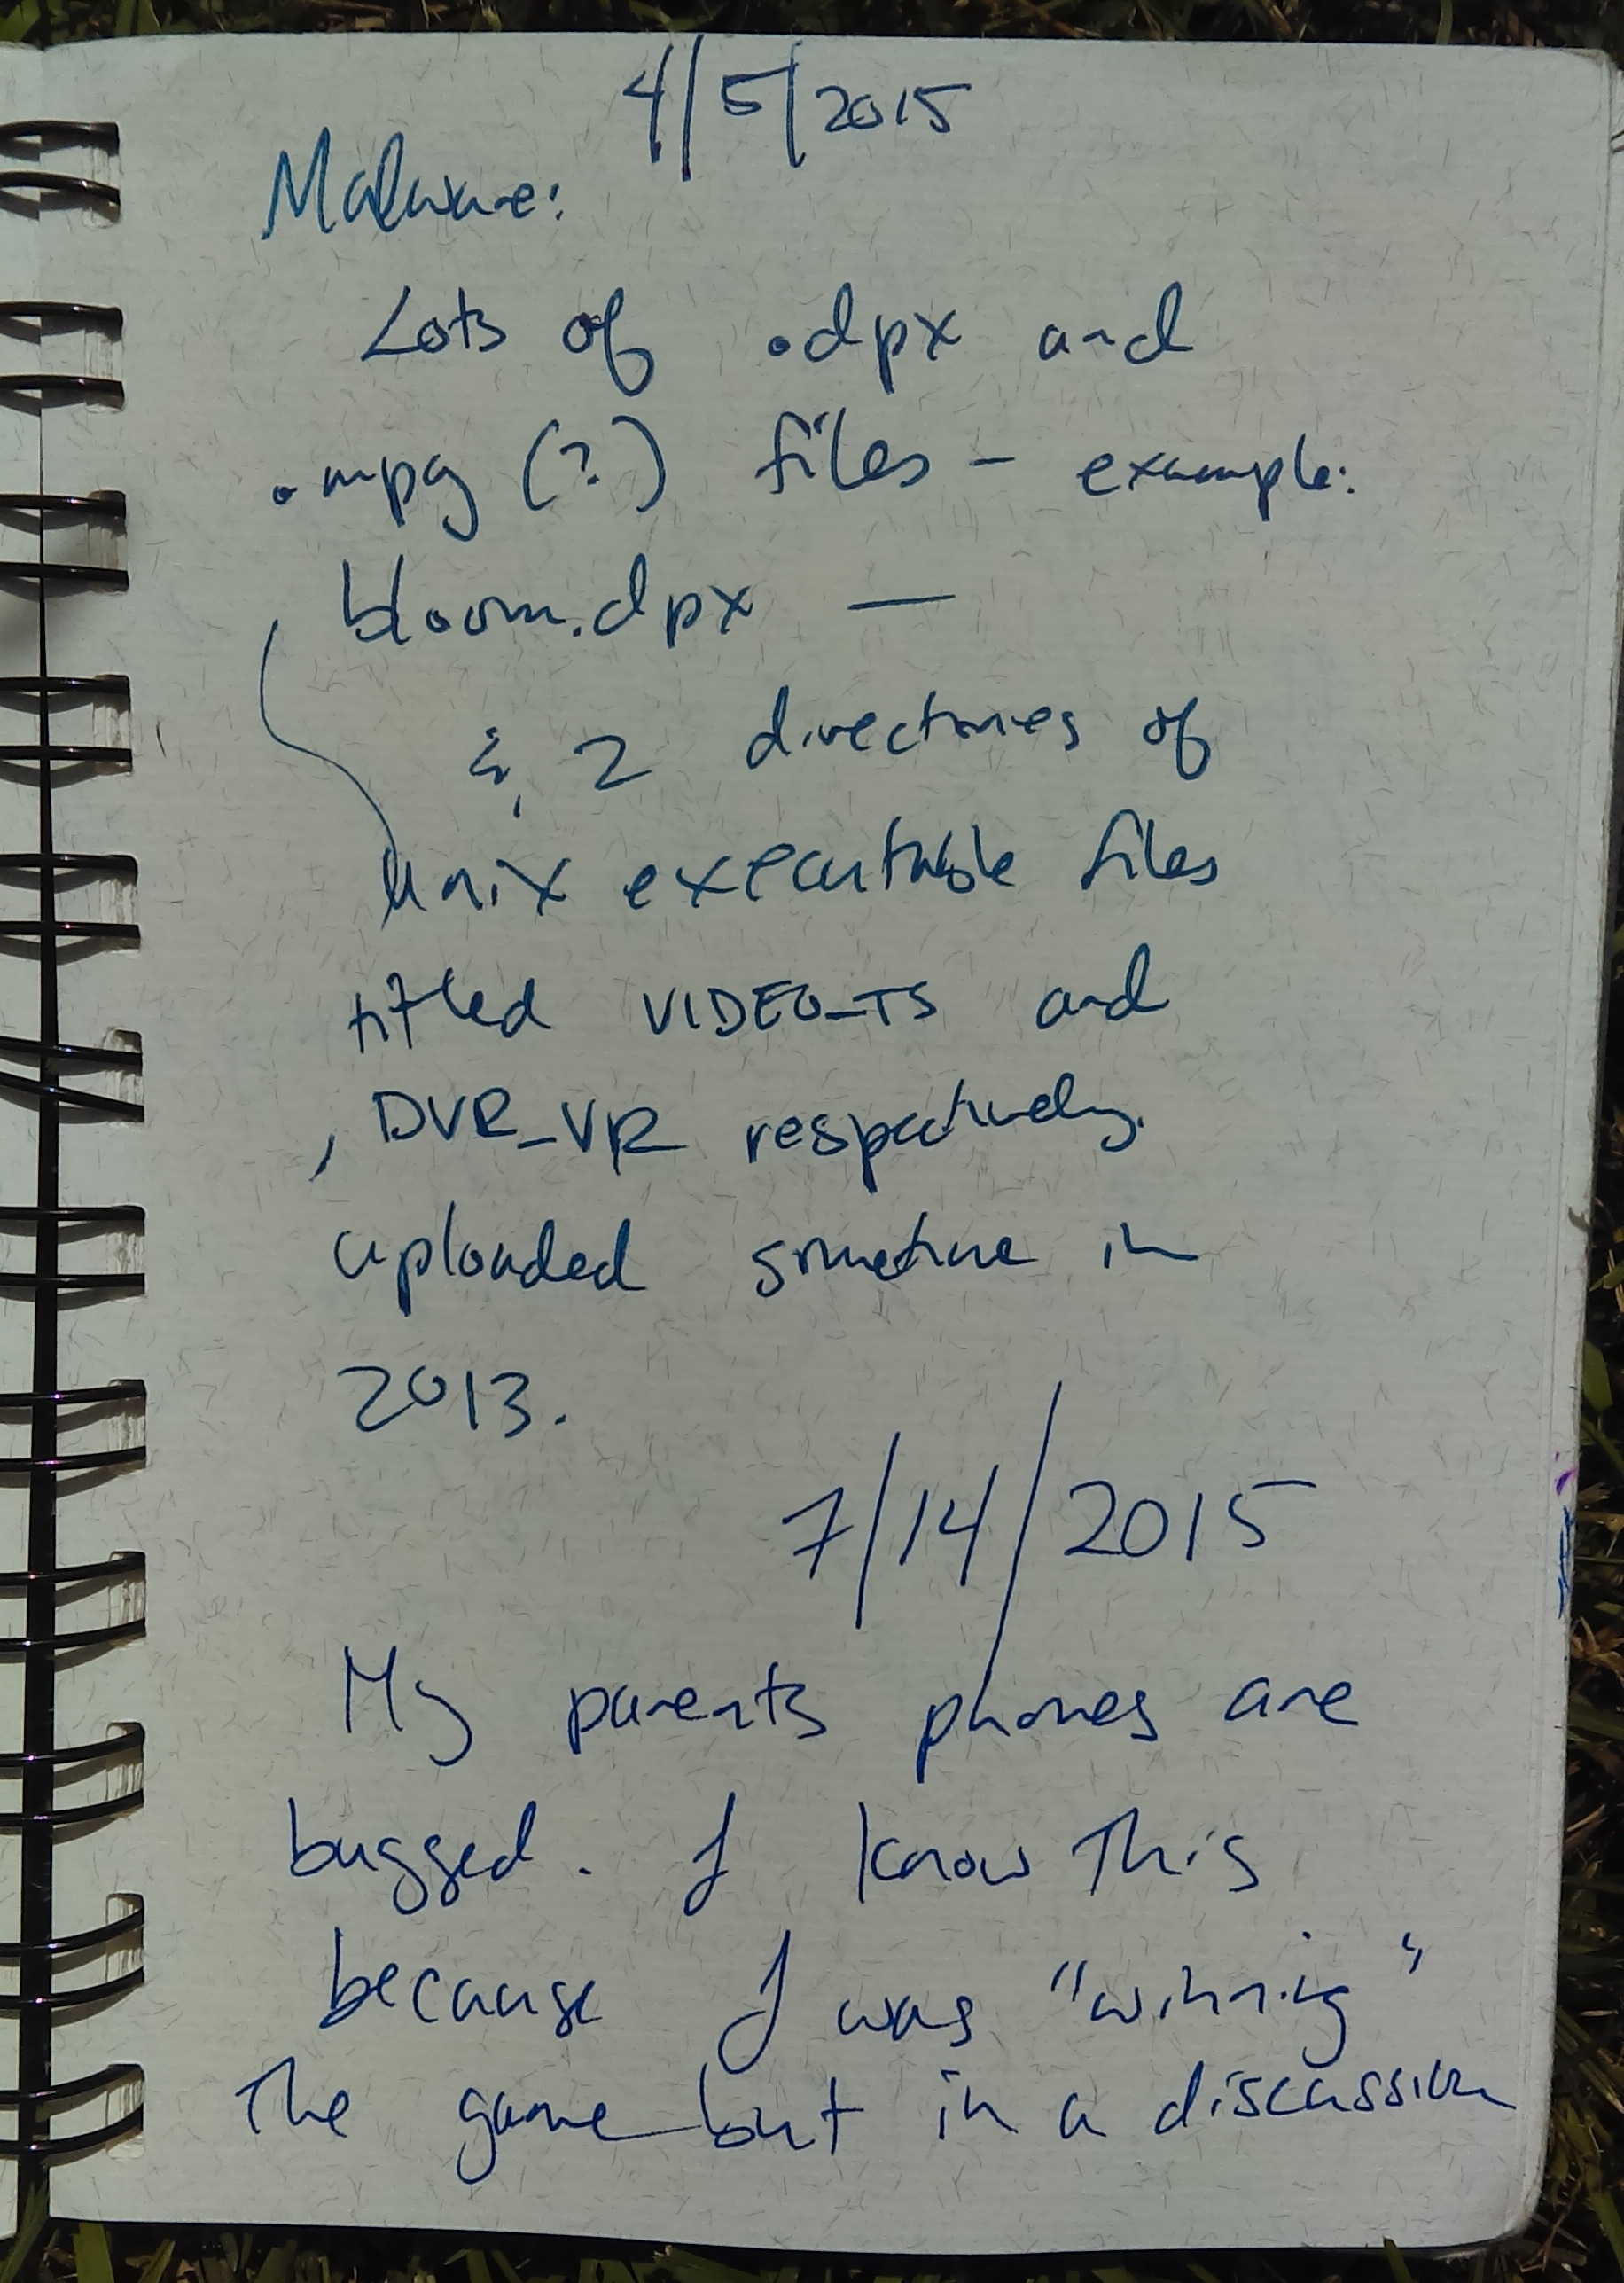 4/5/2015
Malware:
Lots of .dpx and
.mpg (?) files - example:
bloom.dpx —
& 2 directories of
Unix executable files
titled VIDEO_TS and
, DVR_VR respectively.
uploaded sometime in
2013.
7/14/2015
My parents phones are
bugged. I know This
because I was "winnig"
The game but in a discussion